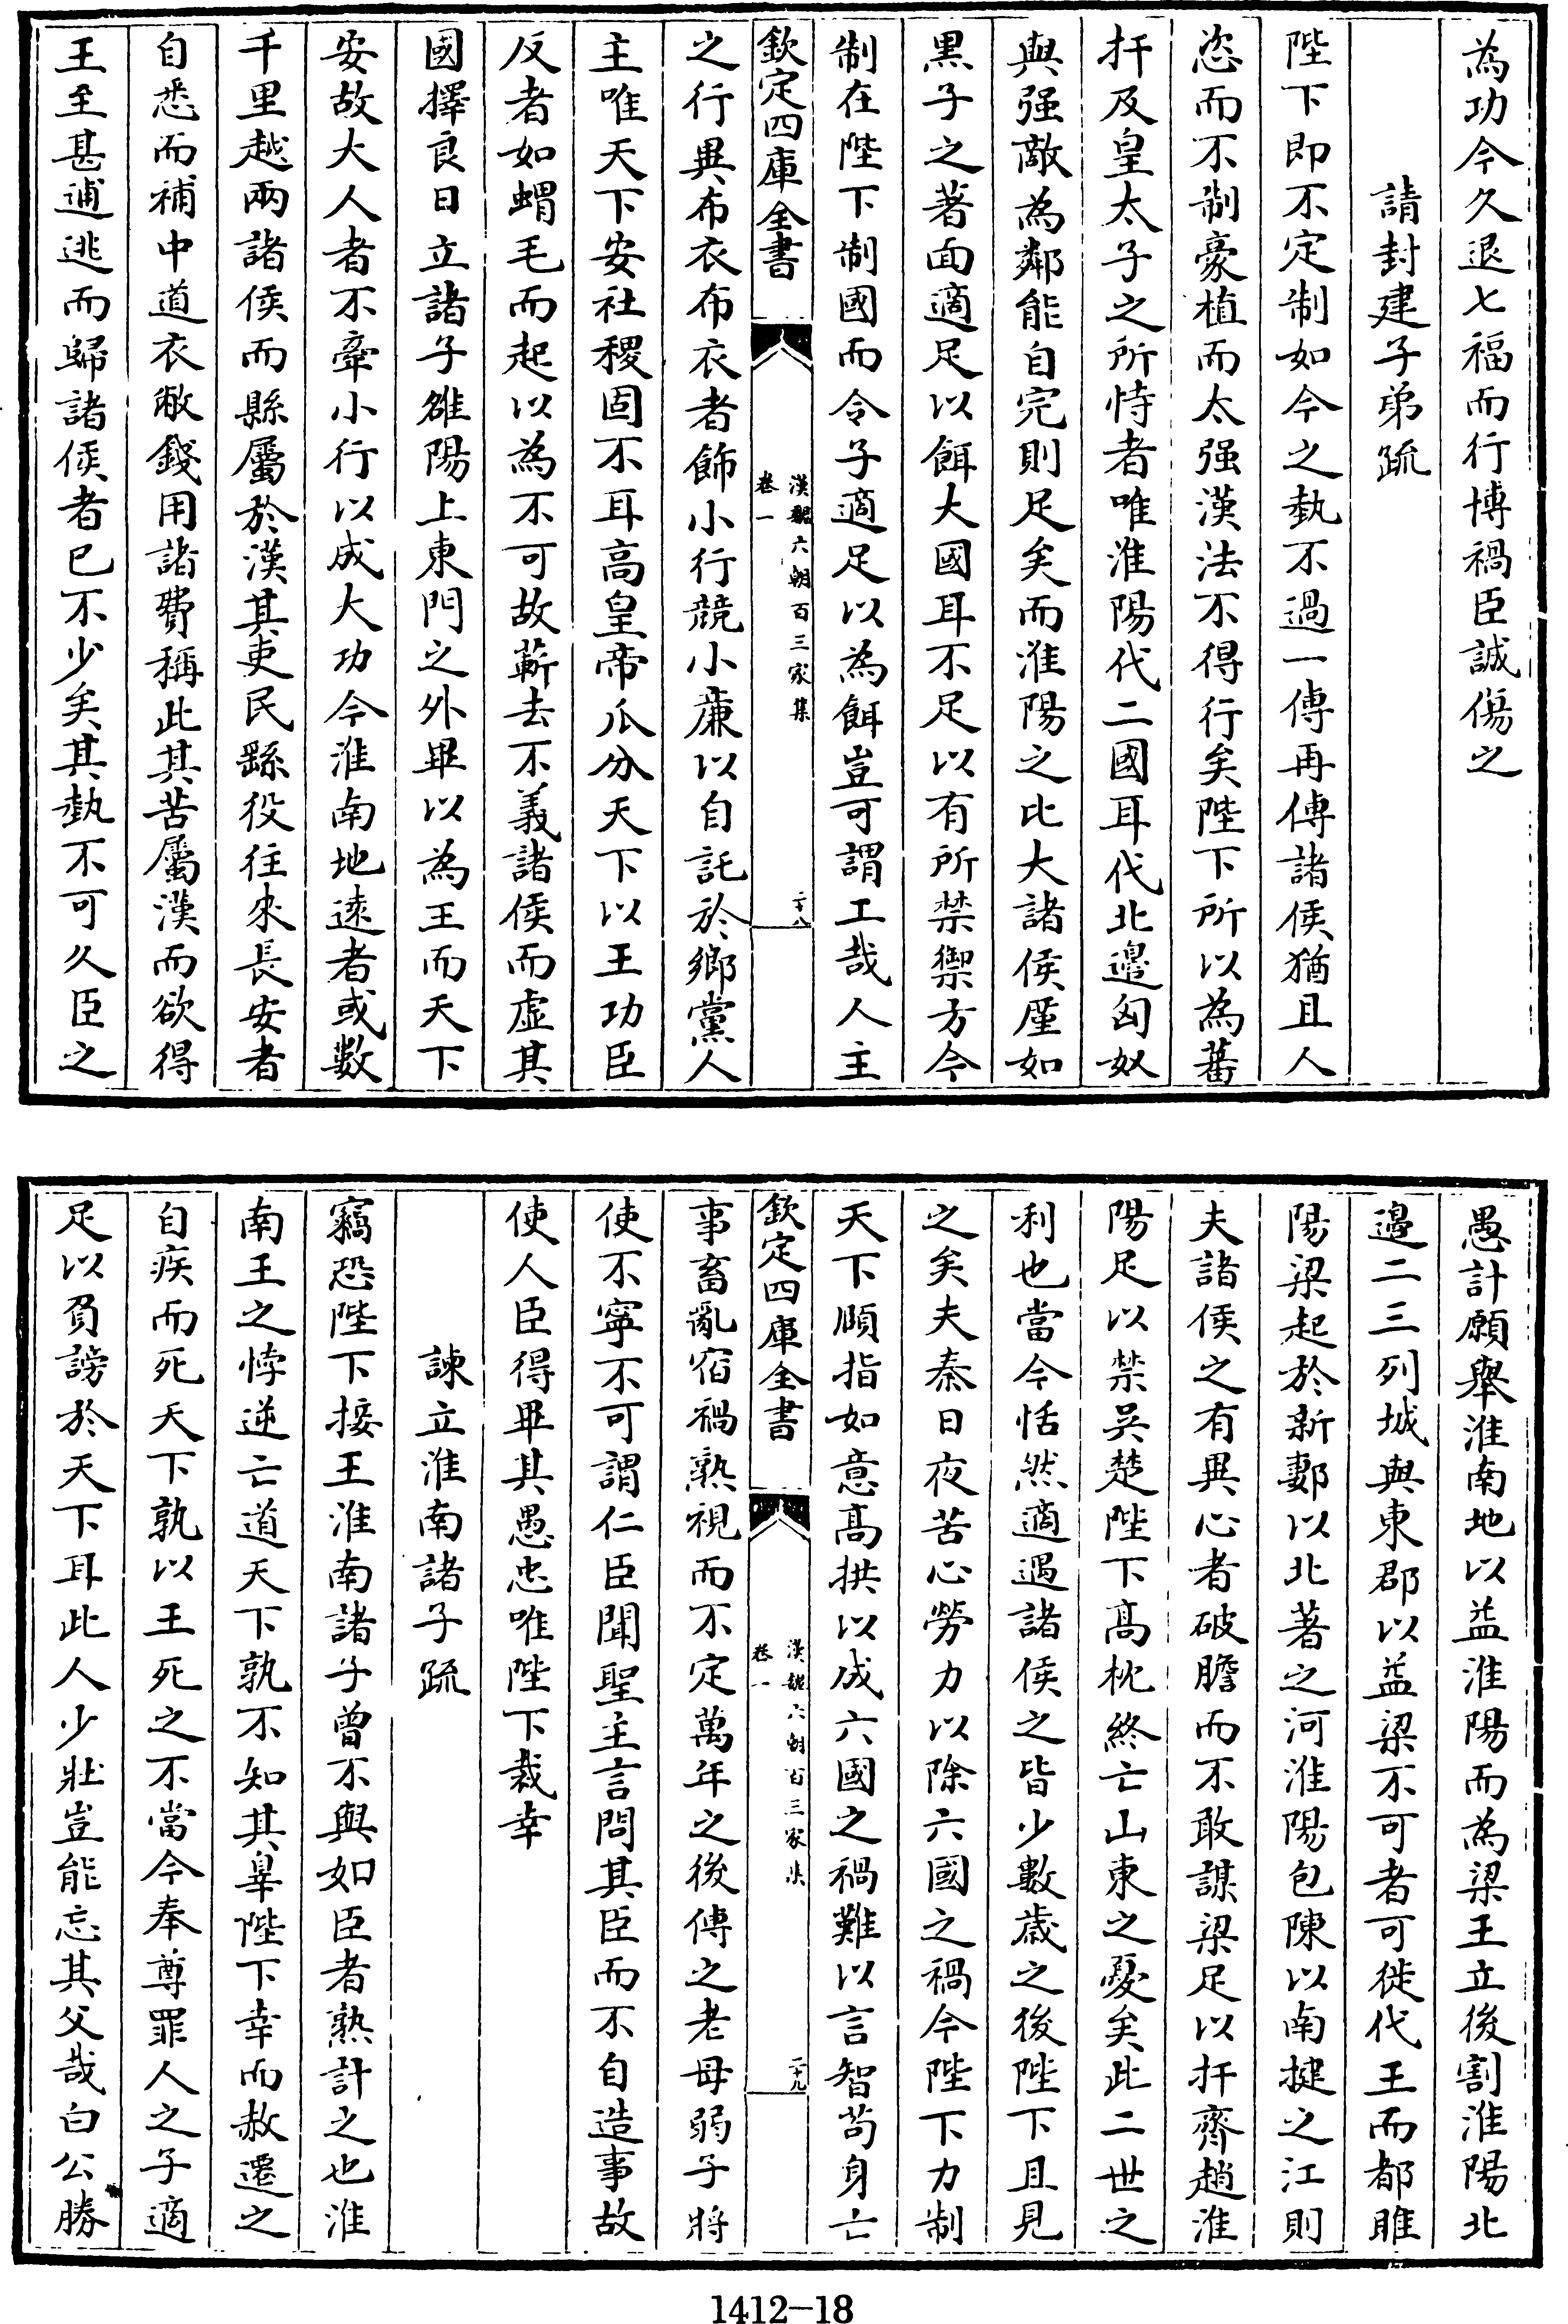 為功今久退七福而行博禍臣誠傷之
請封建子弟疏
陛下即不定制如今之埶不過一傳再傳諸侯猶且人
恣而不制豪植而太强漢法不得行矣陛下所以為蕃
扞及皇太子之所恃者唯淮陽代二國耳代北邉匈奴
與强敵為鄰能自完則足矣而淮陽之比大諸侯廑如
黑子之著面適足以餌大國耳不足以有所禁禦方今
制在陛下制國而令子適足以為餌豈可謂工哉人主
欽定四庫全書
漢魏六朝百三家集
卷一
二十八
之行異布衣布衣者飾小行競小亷以自託於鄉黨人
主唯天下安社稷固不耳高皇帝瓜分天下以王功臣
反者如蝟毛而起以為不可故蔪去不義諸侯而虛其
國擇良日立諸子雒陽上東門之外畢以為王而天下
安故大人者不牽小行以成大功今淮南地逺者或數
千里越兩諸侯而縣屬於漢其吏民繇役往來長安者
自悉而補中道衣敝錢用諸費稱此其苦屬漢而欲得
王至甚逋逃而歸諸侯者已不少矣其埶不可久臣之
愚計願舉淮南地以益淮陽而為梁王立後割淮陽北
邉二三列城與東郡以益梁不可者可徙代王而都睢
陽梁起於新郪以北著之河淮陽包陳以南揵之江則
夫諸侯之有異心者破膽而不敢謀梁足以扞齊趙淮
陽足以禁吳楚陛下髙枕終亡山東之憂矣此二世之
利也當今恬然適遇諸侯之皆少數歲之後陛下且見
之矣夫秦日夜苦心勞力以除六國之禍今陛下力制
天下順指如意髙拱以成六國之禍難以言智苟身亡
欽定四庫全書
漢魏六朝百三家集
卷一
二十九
事畜亂宿禍熟視而不定萬年之後傳之老母弱子將
使不寧不可謂仁臣聞聖主言問其臣而不自造事故
使人臣得畢其愚忠唯陛下裁幸
諫立淮南諸子疏
竊恐陛下接王淮南諸子曾不與如臣者熟計之也淮
南王之悖逆亡道天下孰不知其辠陛下幸而赦遷之
自疾而死天下孰以王死之不當今奉尊罪人之子適
足以負謗於天下耳此人少壯豈能忘其父哉白公勝
1412—18